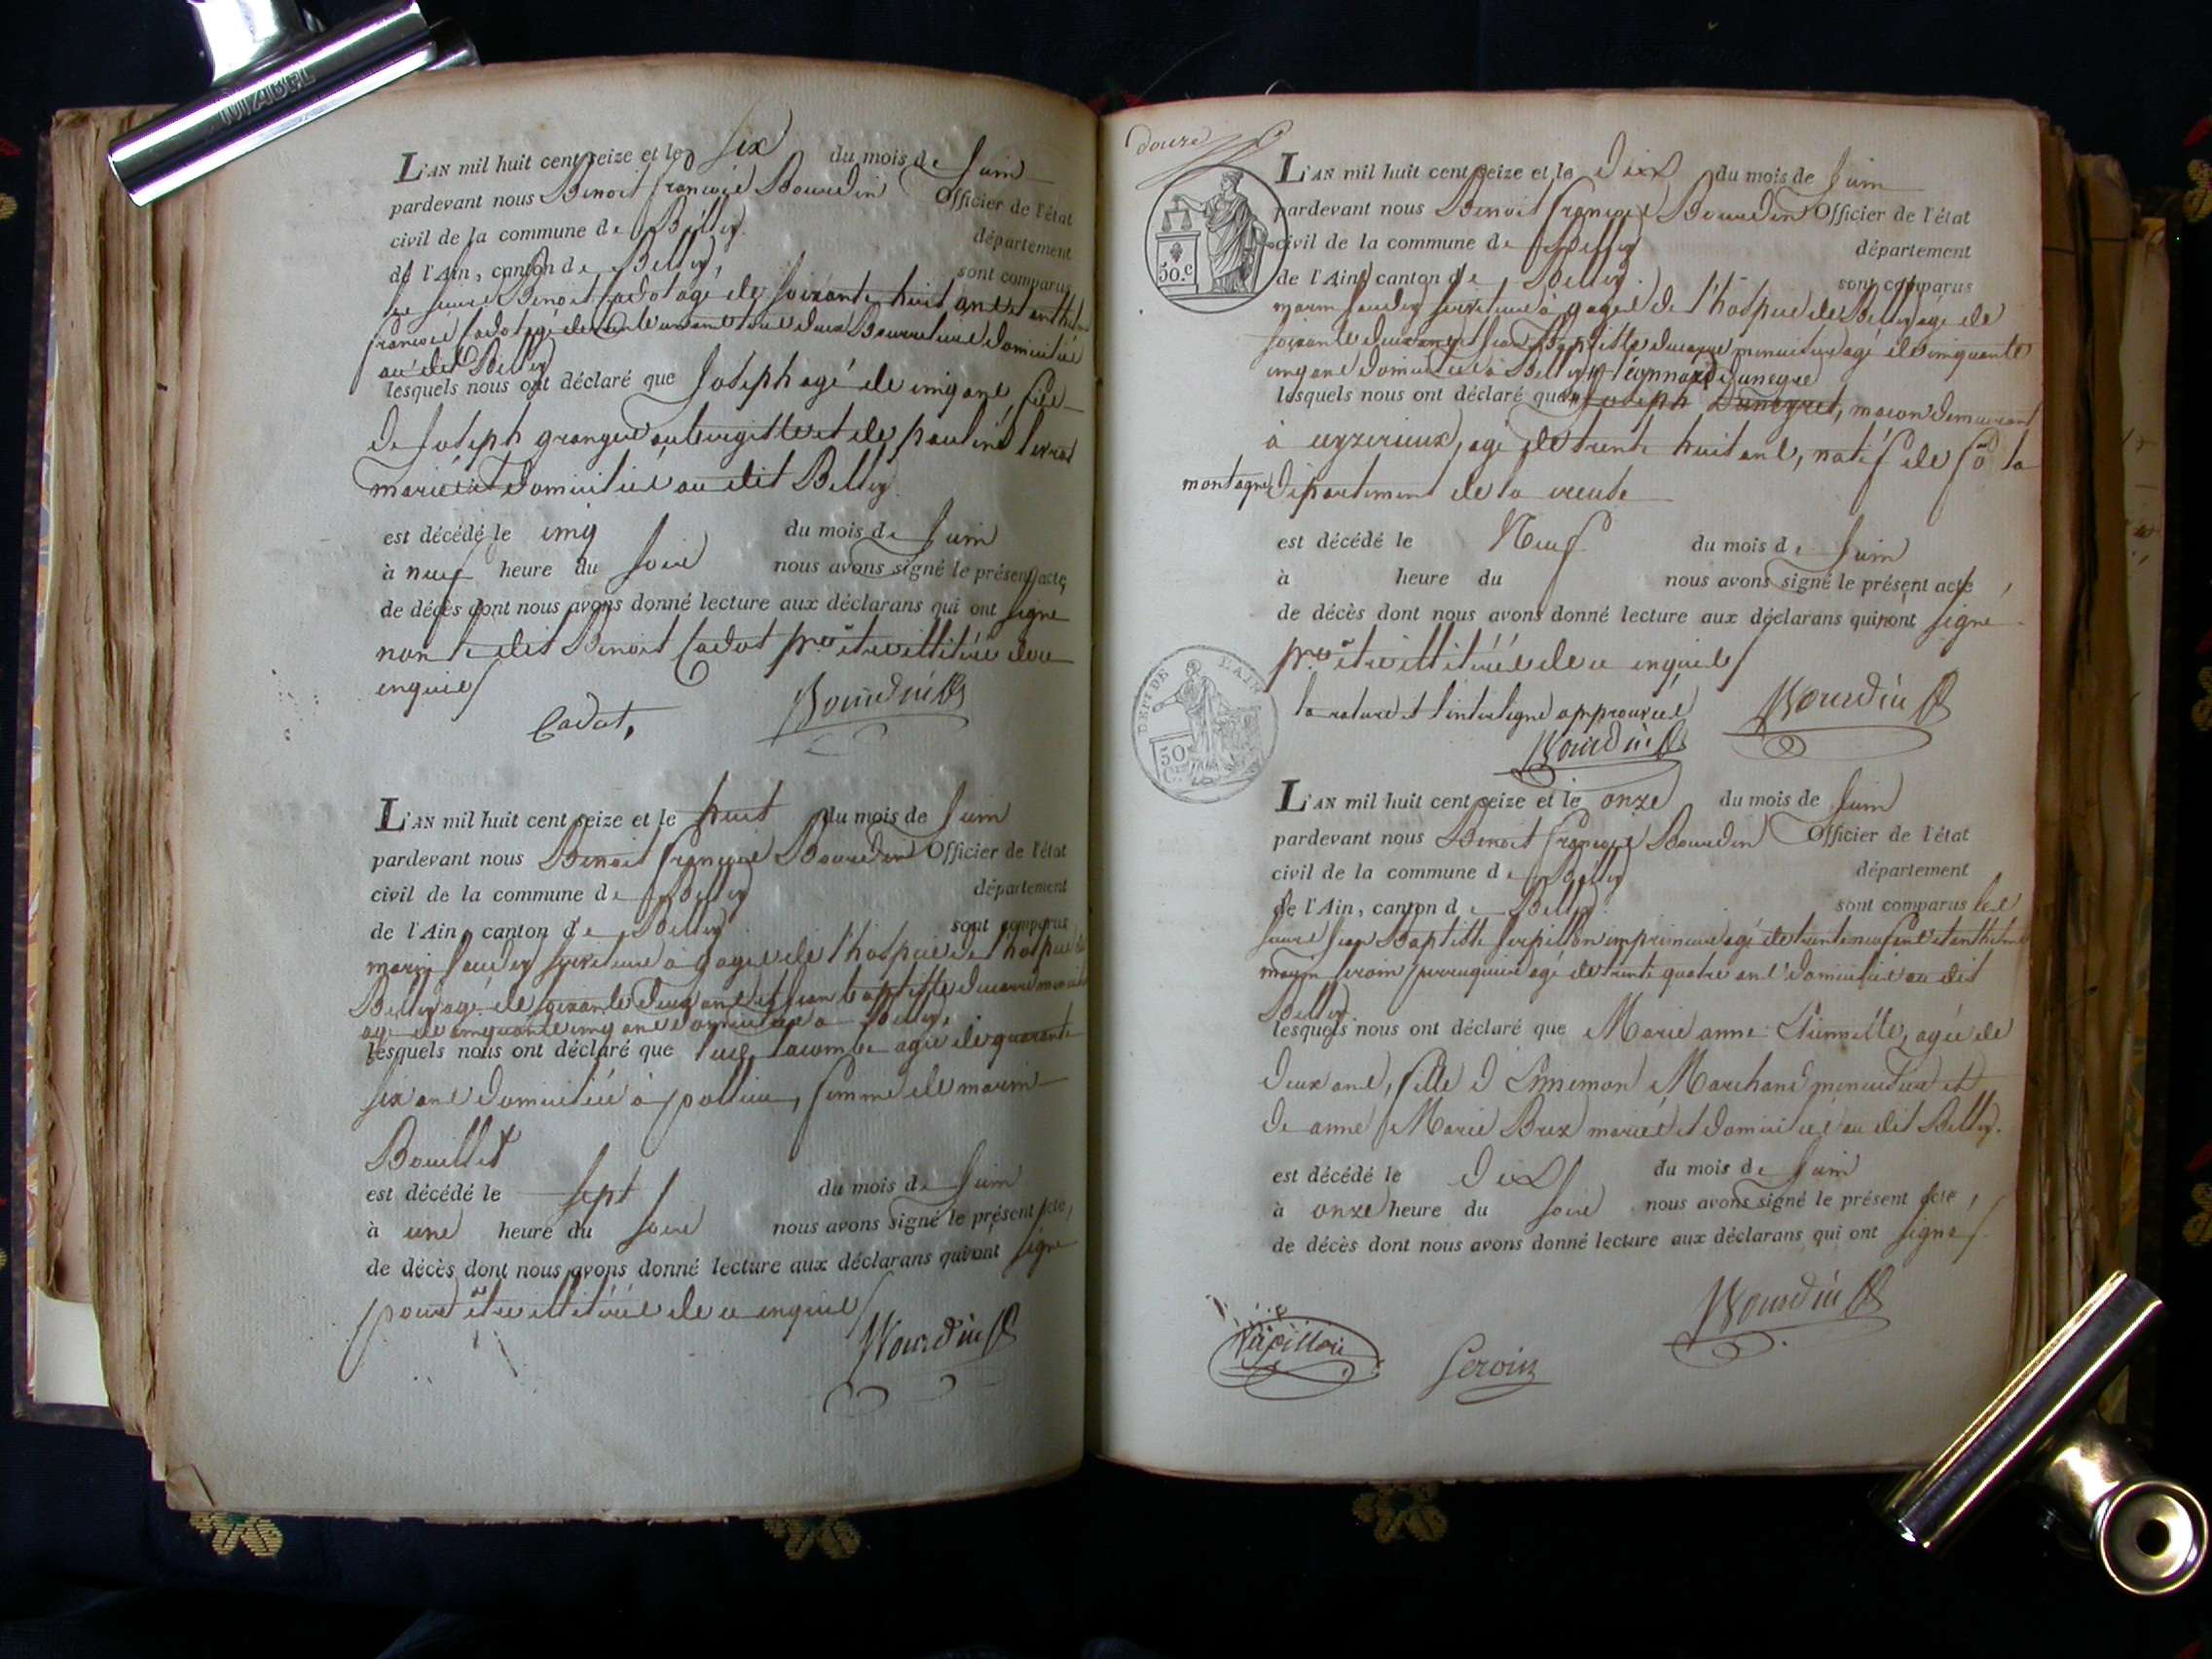 MABEL
L'AN mil huit cent seize et le six du mois de Juin
pardevant nous Benoit françois Bourdin Officier de l'état
civil de la commune de Belley. département
de l'Ain, canton de Belley, sont comparus
Benoit Cadot agé de soixante huit ans et anthelme
françois Cadot agé de trente ans domiciliés
au dit Belley
lesquels nous ont déclaré que Joseph agé de cinq ans, fils
de Joseph granger aubergiste et de pauline
mariés et domiciliés au dit Belley.
est décédé le cinq du mois de Juin
à neuf heure du soir nous avons signé le présent acte,
de décès dont nous avons donné lecture aux déclarans qui ont signé
non le dit Benoit Cadot pr. être illitéré de ce
enquis
Cadot, Bourdin
L'AN mil huit cent seize et le huit du mois de Juin
pardevant nous Benoit françois Bourdin Officier de l'état
civil de la commune de Belley département
de l'Ain, canton de Belley sont comparus
marin serviteur à gages de l'hospice de l'hospice de
Belley agé de soixante deux ans et jean baptiste ducarre
agé de cinquante cinq ans domiciliés à Belley.
lesquels nous ont déclaré que lacombe agée de quarante
six ans domiciliée à pollieu, femme de marin
Bouillet
est décédé le sept du mois de Juin
à une heure du soir nous avons signé le présent acte,
de décès dont nous avons donné lecture aux déclarans qui n'ont signé
pour être illitérés de ce enquis
Bourdin
douze
50.c
L'AN mil huit cent seize et le Dix du mois de Juin
pardevant nous Benoit françois Bourdin Officier de l'état
civil de la commune de Belley département
de l'Ain, canton de Belley. sont comparus
marin serviteur à gages de l'hospice de Belley agé de
soixante deux ans et jean Baptiste ducarre menuisier agé de cinquante
cinq ans domiciliés à Belley léonnard Dunegre
lesquels nous ont déclaré que Joseph Dunegret, maçon demeurant
à ceyzerieux, agé de trente huit ans, natif de la
montagne Département de la creuse
est décédé le Neuf du mois de Juin
à heure du nous avons signé le présent acte,
de décès dont nous avons donné lecture aux déclarans qui n'ont signé
pr. être illitérés de ce enquis
DEPT DE L'AIN
50
la rature et l'interligne approuvées Bourdin
Bourdin
L'AN mil huit cent seize et le onze du mois de Juin
pardevant nous Benoit françois Bourdin Officier de l'état
civil de la commune de Belley département
de l'Ain, canton de Belley. sont comparus les
sieurs Jean Baptiste imprimeur agé de trente neuf ans et anthelme
marin perruquier agé de trente quatre ans domiciliés au dit
Belley
lesquels nous ont déclaré que Marie anne agée de
deux ans, fille d Marchand menuisier et
de anne Marie Brex mariés et domiciliés au dit Belley.
est décédé le dix du mois de Juin
à onze heure du soir nous avons signé le présent acte,
de décès dont nous avons donné lecture aux déclarans qui ont signé.
Bourdin